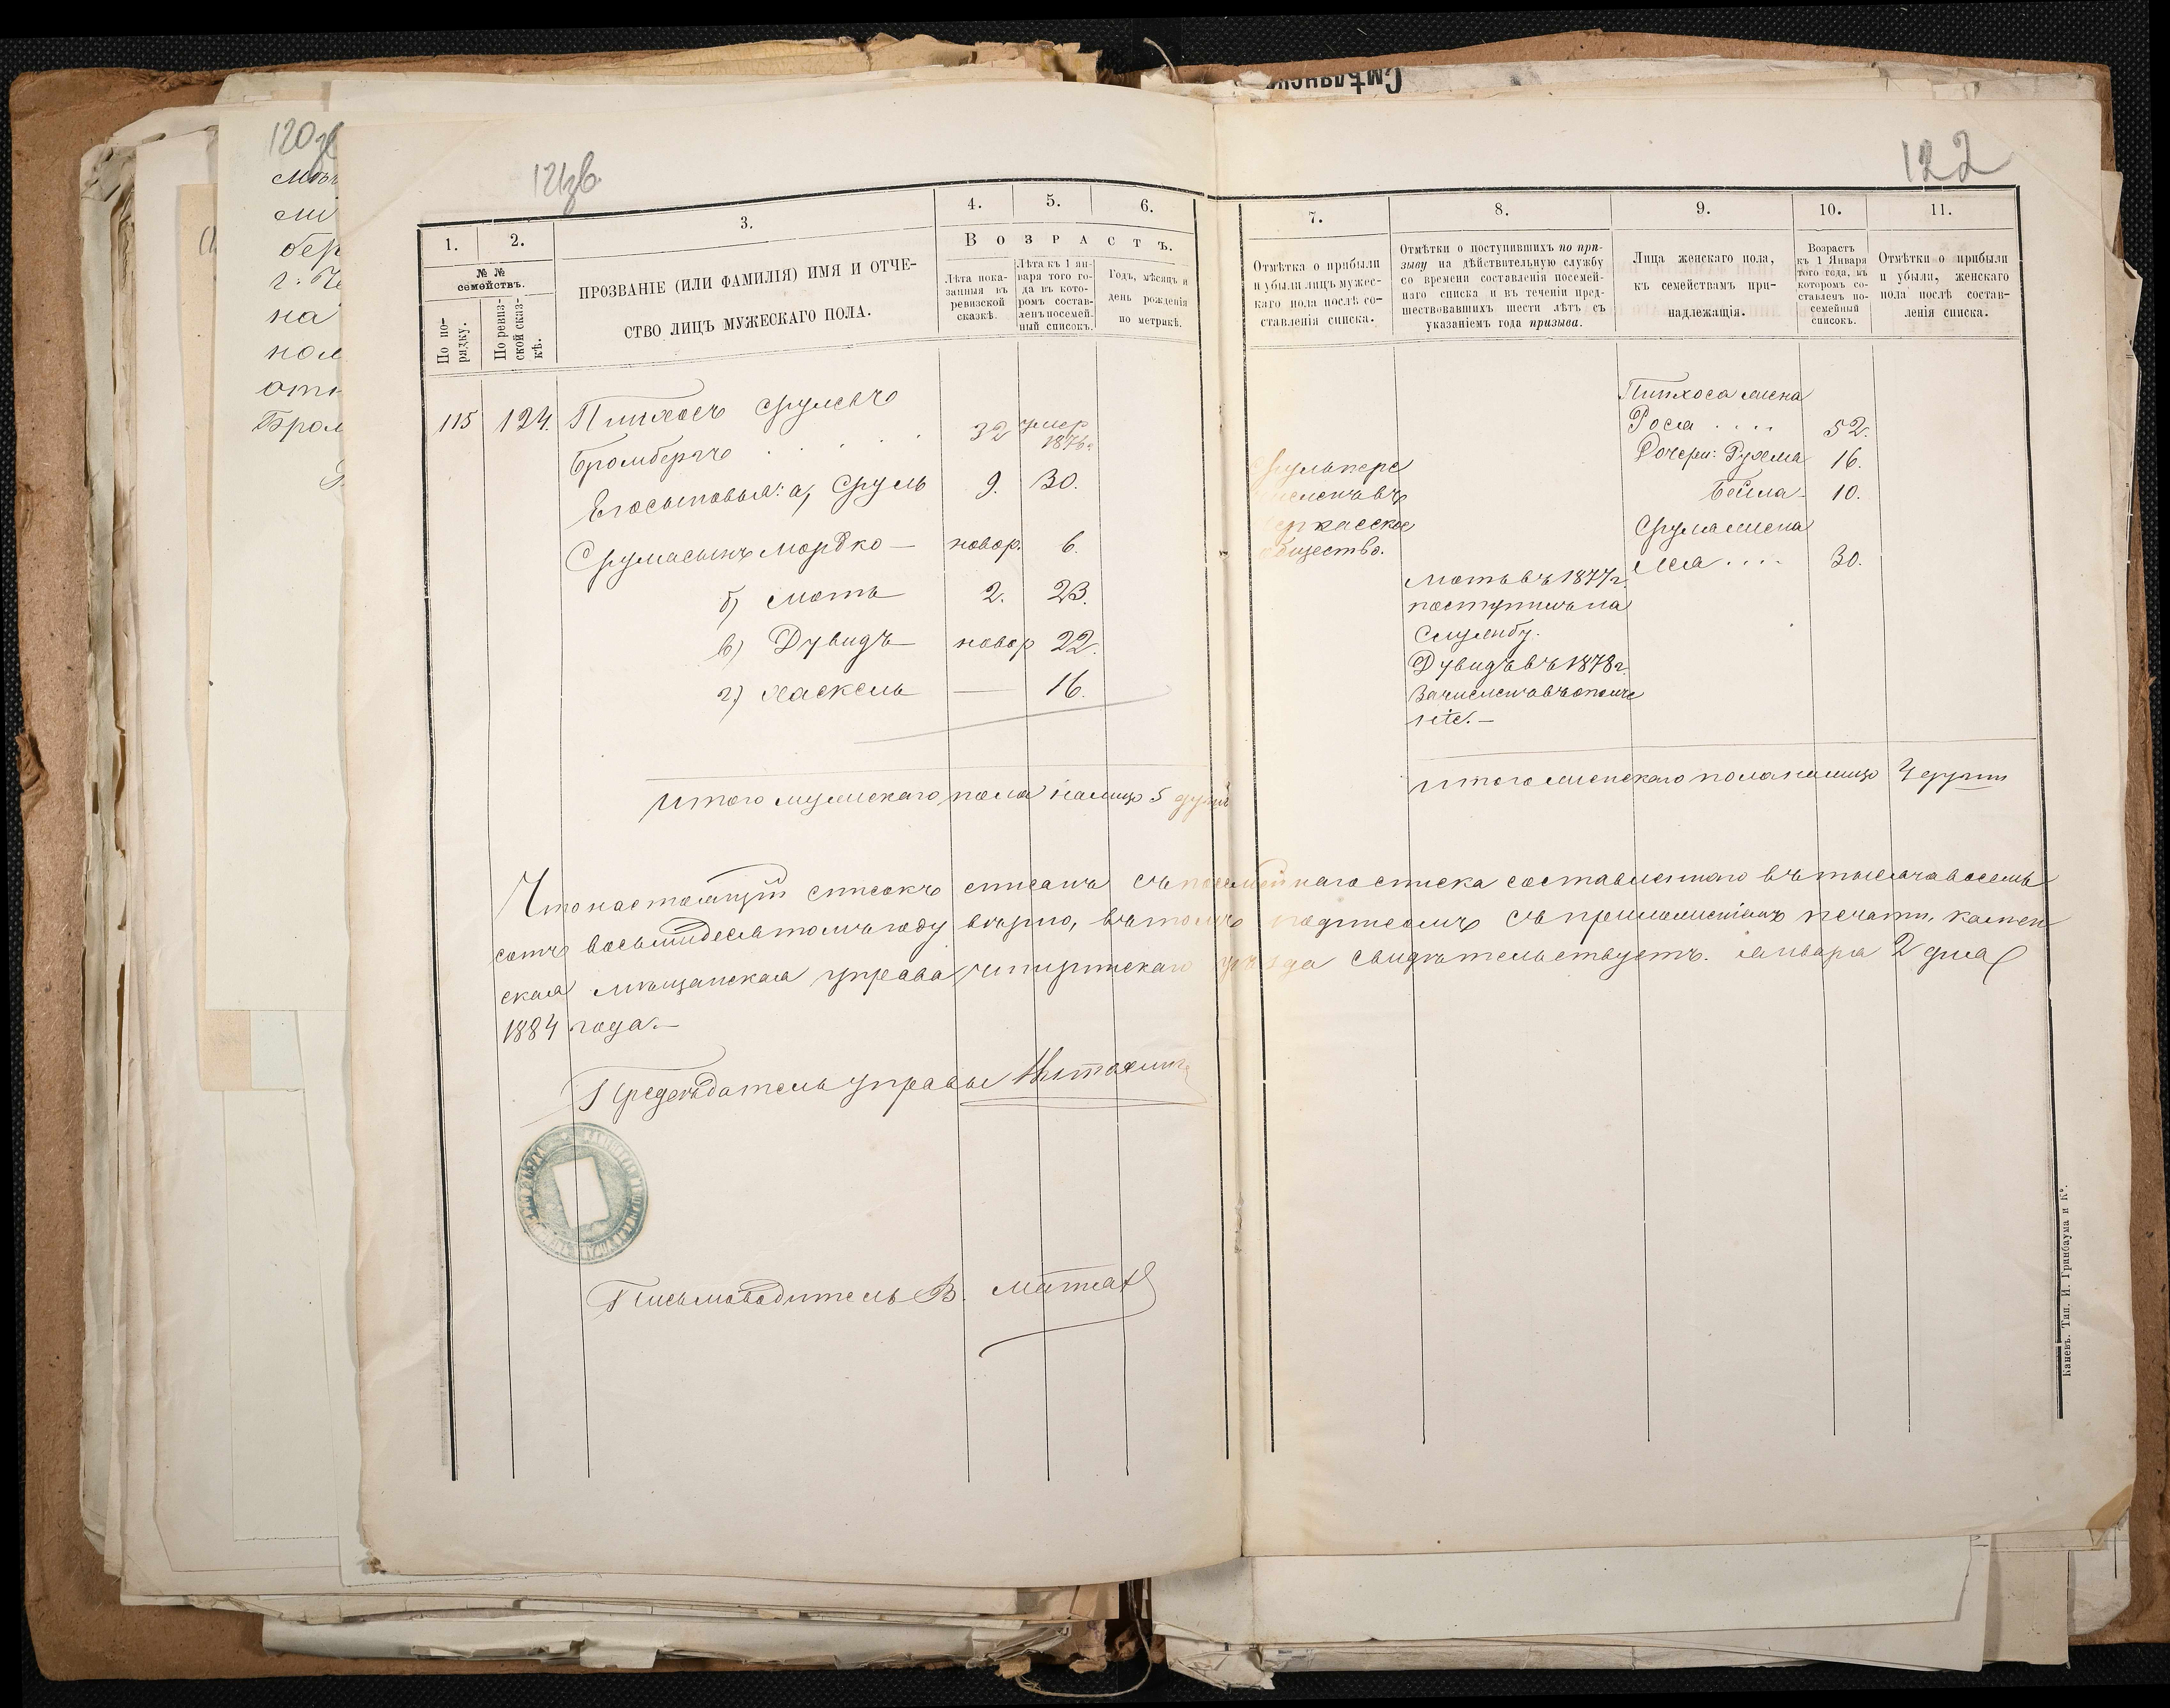 Смѣлянск
120
121зв.
122
мі
бер
на
пол
Бром
1.
2.
3.
4.
5.
6.
В о з р а с т ъ.
№ №
семействъ.
По по-
рядку.
По ревиз-
ской сказ-
кѣ.
ПРОЗВАНІЕ (ИЛИ ФАМИЛІЯ) ИМЯ И ОТЧЕ-
СТВО ЛИЦЪ МУЖЕСКАГО ПОЛА.
Лѣта пока-
занныя въ
ревизской
сказкѣ.
Лѣта къ 1 ян-
варя того го-
да въ кото-
ромъ состав-
ленъ посемей-
ный списокъ.
Годъ, мѣсяцъ и
день рожденія
по метрикѣ.
115 124. Пинхосъ Срулевъ
Бромбергъ . . . . 32 умер
1876г.
Его сыновья: а, Сруль 9. 30.
Сруля сынъ Мордко — новор. 6.
б) Моть 2. 23.
в) Дувидъ — новор 22.
г) Хаскель — 16.
Итого мужескаго пола налицо 5 душъ
7.
8.
9.
10.
11.
Отмѣтка о прибыли
и убыли лицъ мужес-
каго пола послѣ со-
ставленія списка.
Отмѣтки о поступившихъ по при-
зыву на дѣйствительную службу
со времени составленія посемей-
наго списка и въ теченіи пред-
шествовавшихъ шести лѣтъ съ
указаніемъ года призыва.
Лица женскаго пола,
къ семействамъ при-
надлежащія.
Возрастъ
къ 1 Января
того года, въ
которомъ со-
ставленъ по-
семейный
списокъ.
Отмѣтки о прибыли
и убыли, женскаго
пола послѣ состав-
ленія списка.
Сруль пере
численъ въ
Черкасское
общество.
Моть въ 1877г.
поступилъ на
Службу.
Дувидъ въ 1878г.
Зачисленъ въ ополче
ніе. —
Пинхоса жена
Рося . . . . 52.
Дочери: Рухля 16.
Бейла 10.
Сруля жена
Лея . . . . 30.
Итого женскаго пола налицо 4 души
Что настоящій списокъ списанъ съ посемейнаго списка составленнаго въ тысяча восемь
сотъ восьмидесятомъ году вѣрно, въ томъ подписомъ съ приложеніемъ печати, камен
ская мѣщанская управа чигиринскаго уѣзда свидѣтельствуетъ. Января 2 дня
1884 года. —
Предсѣдатель управы
Письмоводитель В.
Каневъ. Тип. И. Гринбаума и К°.